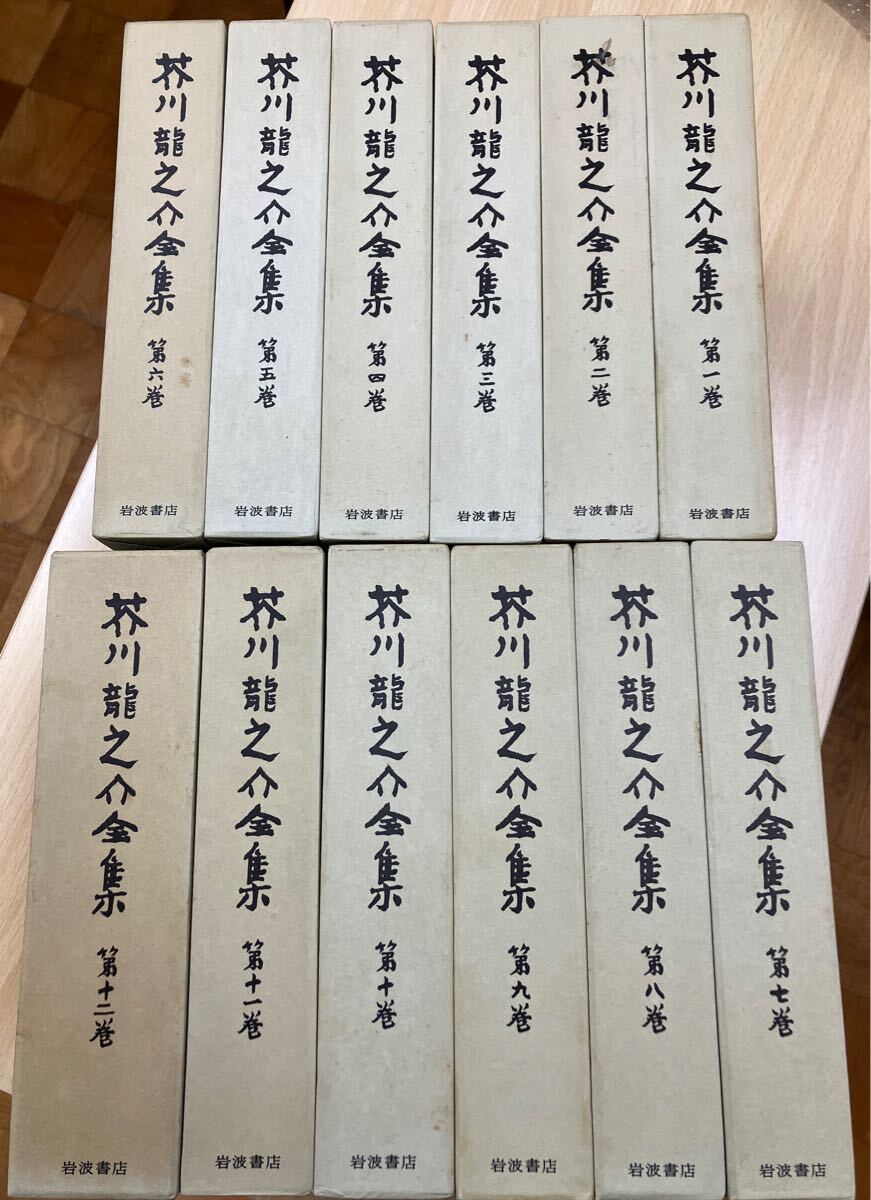 芥川龍之介全集 第一巻
岩波書店
芥川龍之介全集 第二巻
岩波書店
芥川龍之介全集 第三巻
岩波書店
芥川龍之介全集 第四巻
岩波書店
芥川龍之介全集 第五巻
岩波書店
芥川龍之介全集 第六巻
岩波書店
芥川龍之介全集 第七巻
岩波書店
芥川龍之介全集 第八巻
岩波書店
芥川龍之介全集 第九巻
岩波書店
芥川龍之介全集 第十巻
岩波書店
芥川龍之介全集 第十一巻
岩波書店
芥川龍之介全集 第十二巻
岩波書店